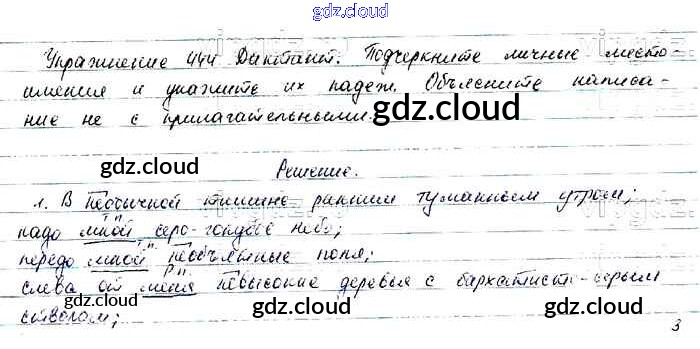 gdz.cloud
Упражнение 444 Диктант. Подчеркните личные место-
имения и укажите их падеж. Объясните написа-
ние не с прилагательными.
gdz.cloud
gdz.cloud
gdz.cloud
Решение.
1. В необычной тишине ранним туманным утром;
надо мной серо-голубое небо;
передо мной необъятные поля;
слева от меня невысокие деревья с бархатист-серым
стволом;
gdz.cloud
gdz.cloud
gdz.cloud
3